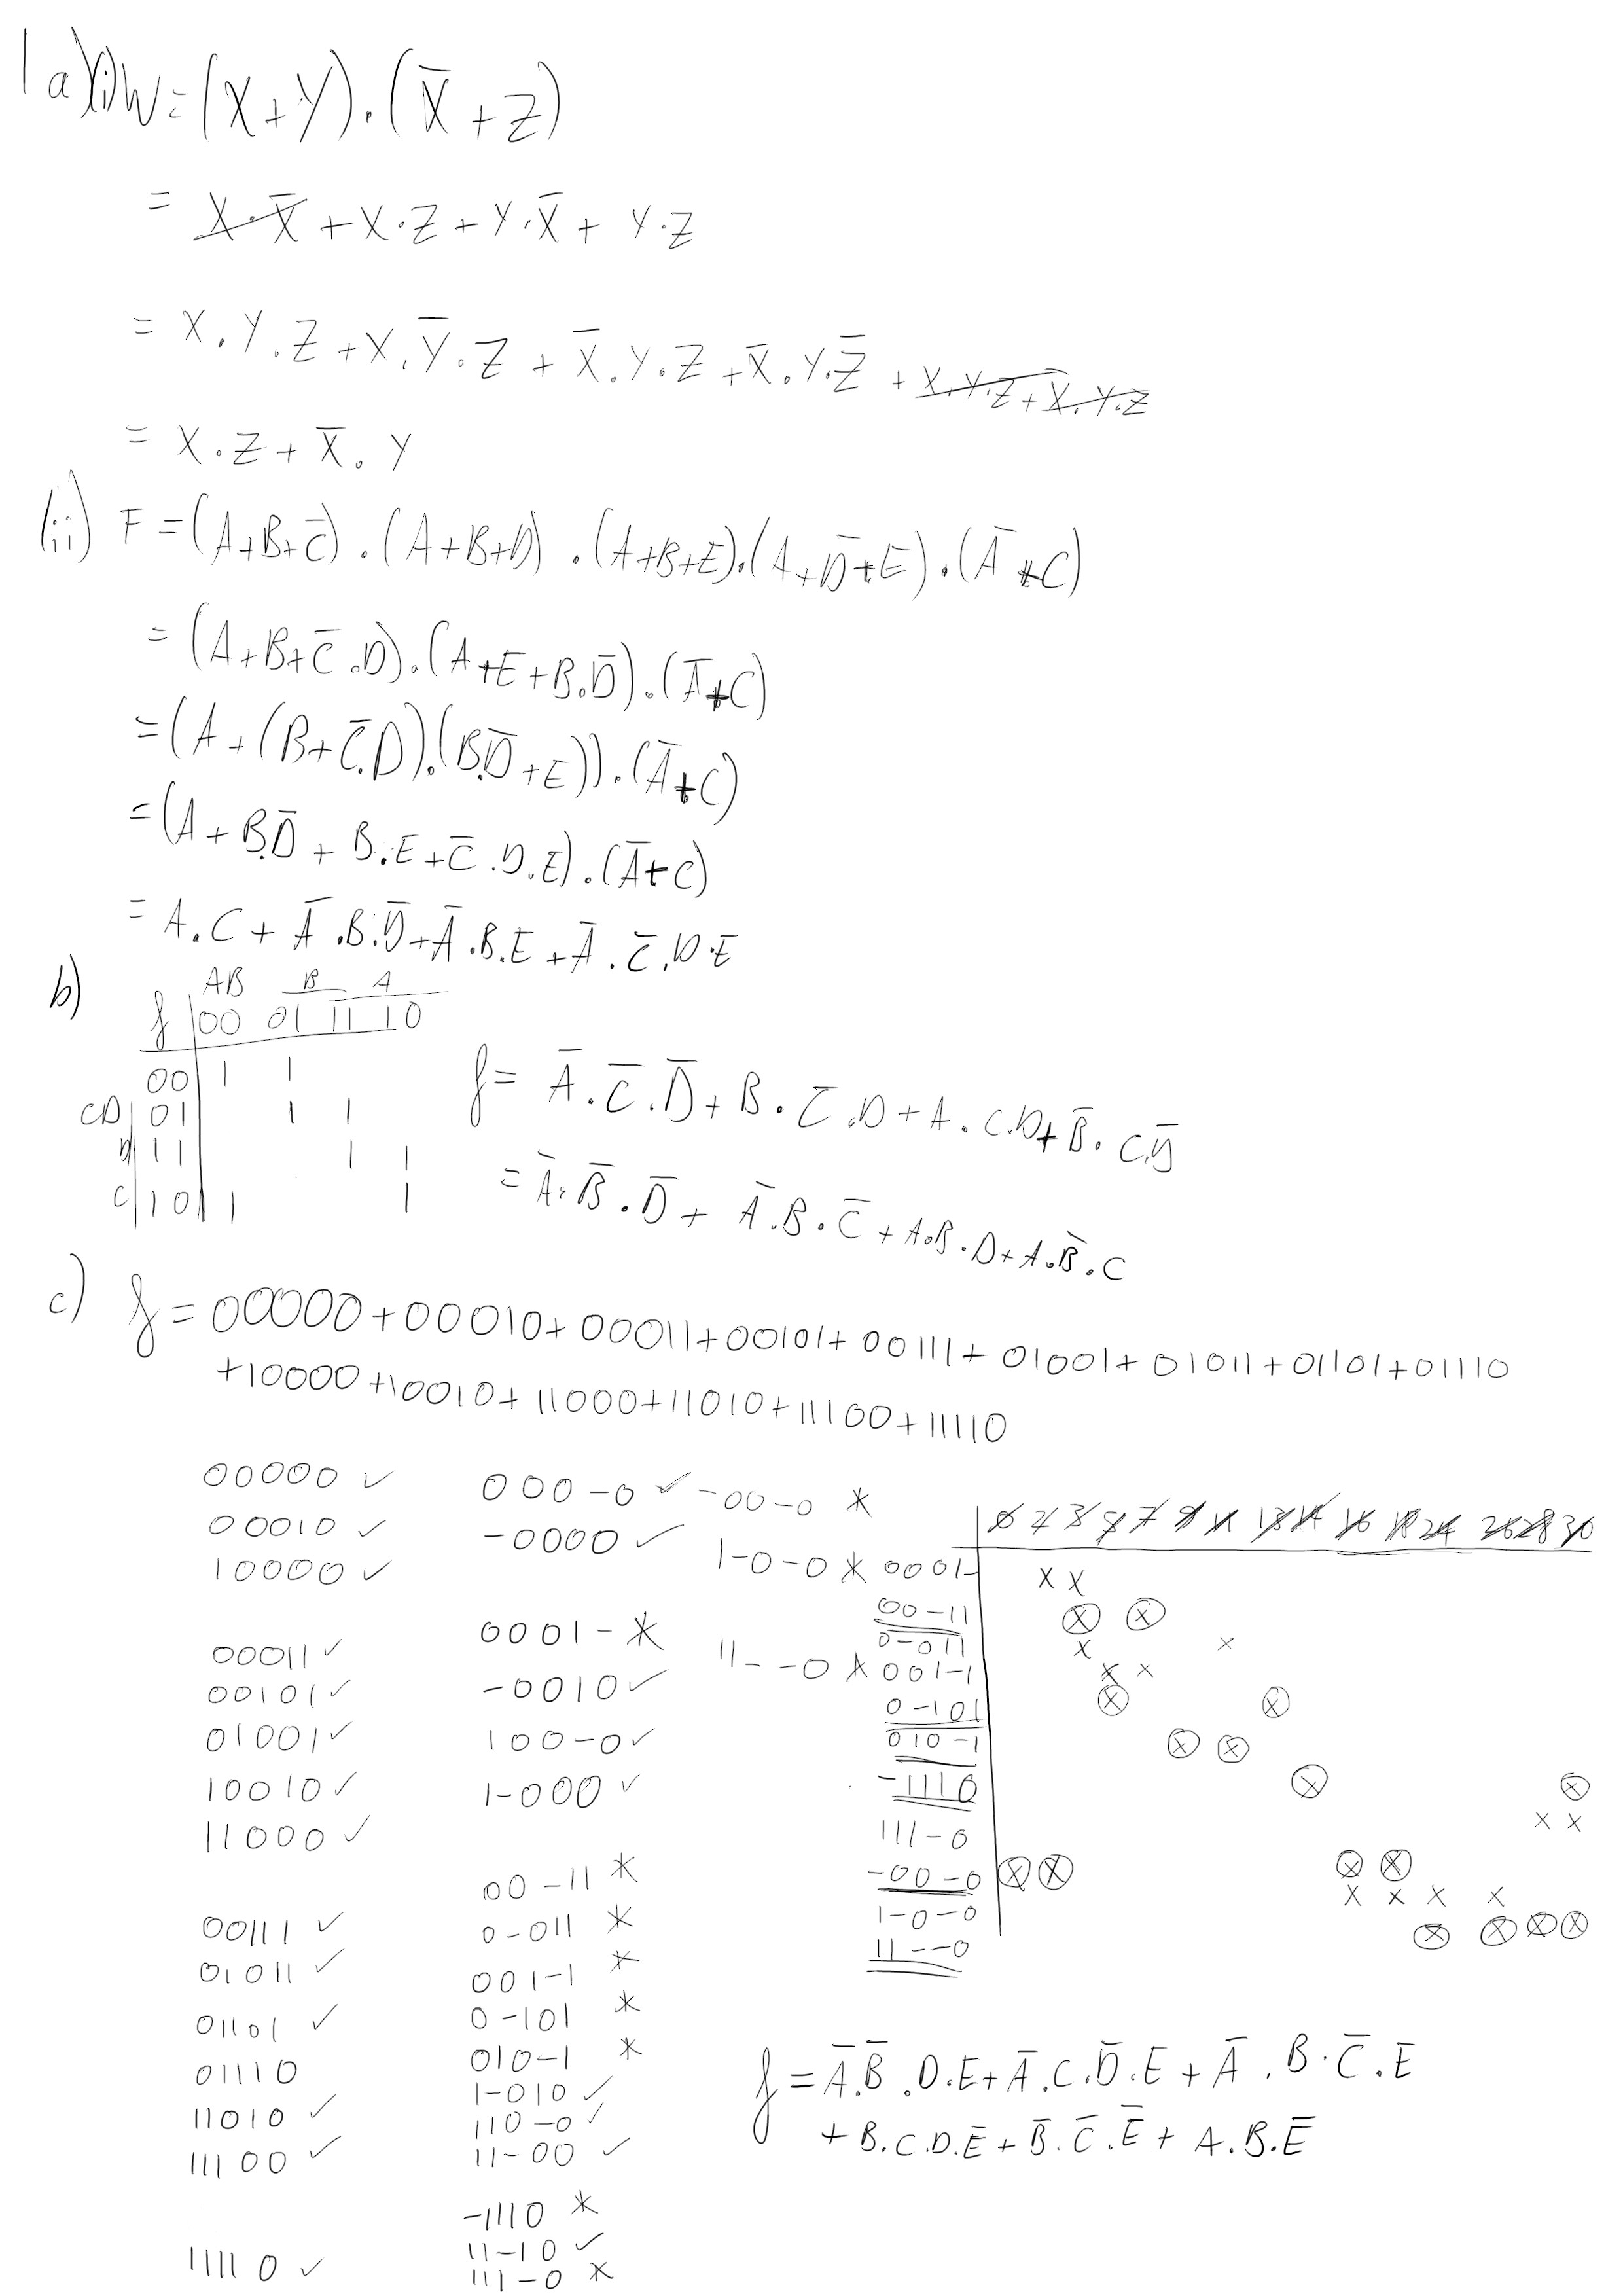 1a)(i) W = (X+Y).(X̅+Z)
= X.X̅ + X.Z + Y.X̅ + Y.Z
= X.Y.Z + X.Y̅.Z + X̅.Y.Z + X̅.Y.Z̅ + X.Y.Z + X̅.Y.Z
= X.Z + X̅.Y
(ii) F = (A+B+C̅).(A+B+D).(A+B+E).(A+D̅+E).(A̅+C)
= (A+B+C̅.D).(A+E+B.D̅).(A̅+C)
= (A+(B+C̅.D).(B.D̅+E)).(A̅+C)
= (A+B.D̅+B.E+C̅.D.E).(A̅+C)
= A.C + A̅.B.D̅ + A̅.B.E + A̅.C̅.D.E
b) AB B A
f 00 01 11 10
00 1 1
CD 01 1 1
D 11 1 1
C 10 1 1
f = A̅.C̅.D̅ + B.C̅.D + A.C.D + B̅.C.D̅
= A̅.B̅.D̅ + A̅.B.C̅ + A.B.D + A.B̅.C
c) f = 00000 + 00010 + 00011 + 00101 + 00111 + 01001 + 01011 + 01101 + 01110
+10000 + 10010 + 11000 + 11010 + 11100 + 11110
00000 ✓
00010 ✓
10000 ✓
00011 ✓
00101 ✓
01001 ✓
10010 ✓
11000 ✓
00111 ✓
01011 ✓
01101 ✓
01110
11010 ✓
11100 ✓
11110 ✓
000-0 ✓
-0000 ✓
0001- *
-0010 ✓
100-0 ✓
1-000 ✓
00-11 *
0-011 *
001-1 *
0-101 *
010-1 *
1-010 ✓
110-0 ✓
11-00 ✓
-1110 *
11-10 ✓
111-0 *
-00-0 *
1-0-0 *
11--0 *
0 2 3 5 7 9 11 13 14 16 18 24 26 28 30
0001- x x
00-11 x x
0-011 x x
001-1 x x
0-101 x x
010-1 x x
-1110 x x
111-0 x x
-00-0 x x x x
1-0-0 x x x x
11--0 x x x x
f = A̅.B̅.D.E + A̅.C.D̅.E + A̅.B.C̅.E
+ B.C.D.E̅ + B̅.C̅.E̅ + A.B.E̅